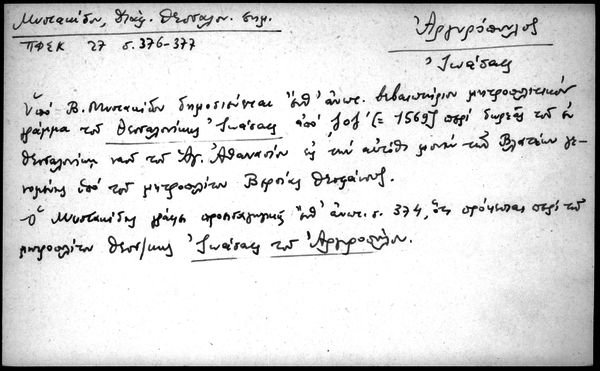 Μυστακίδου, Διάφ. Θεσσαλον. σημ.
ΠΦΣΚ 27 σ. 376-377
Ἀργυρόπουλος
Ἰωάσαφ
Ὑπὸ Β. Μυστακίδου δημοσιεύεται ἔνθ' ἀνωτ. βεβαιωτήριον μητροπολιτικὸν
γράμμα τοῦ Θεσσαλονίκης Ἰωάσαφ ἀπὸ [= 1569] περὶ δωρεᾶς τοῦ ἐν
Θεσσαλονίκῃ ναοῦ τοῦ Ἁγ. Ἀθανασίου εἰς τὴν αὐτόθι μονὴν τῶν Βλατέων γε-
νομένης ὑπὸ τοῦ μητροπολίτου Βερροίας Θεοφάνους.
Ὁ Μυστακίδης γράφει προεισαγωγικῶς ἔνθ' ἀνωτ. σ. 374, ὅτι πρόκειται περὶ τοῦ
μητροπολίτου Θεσ/κης Ἰωάσαφ τοῦ Ἀργυροπούλου.